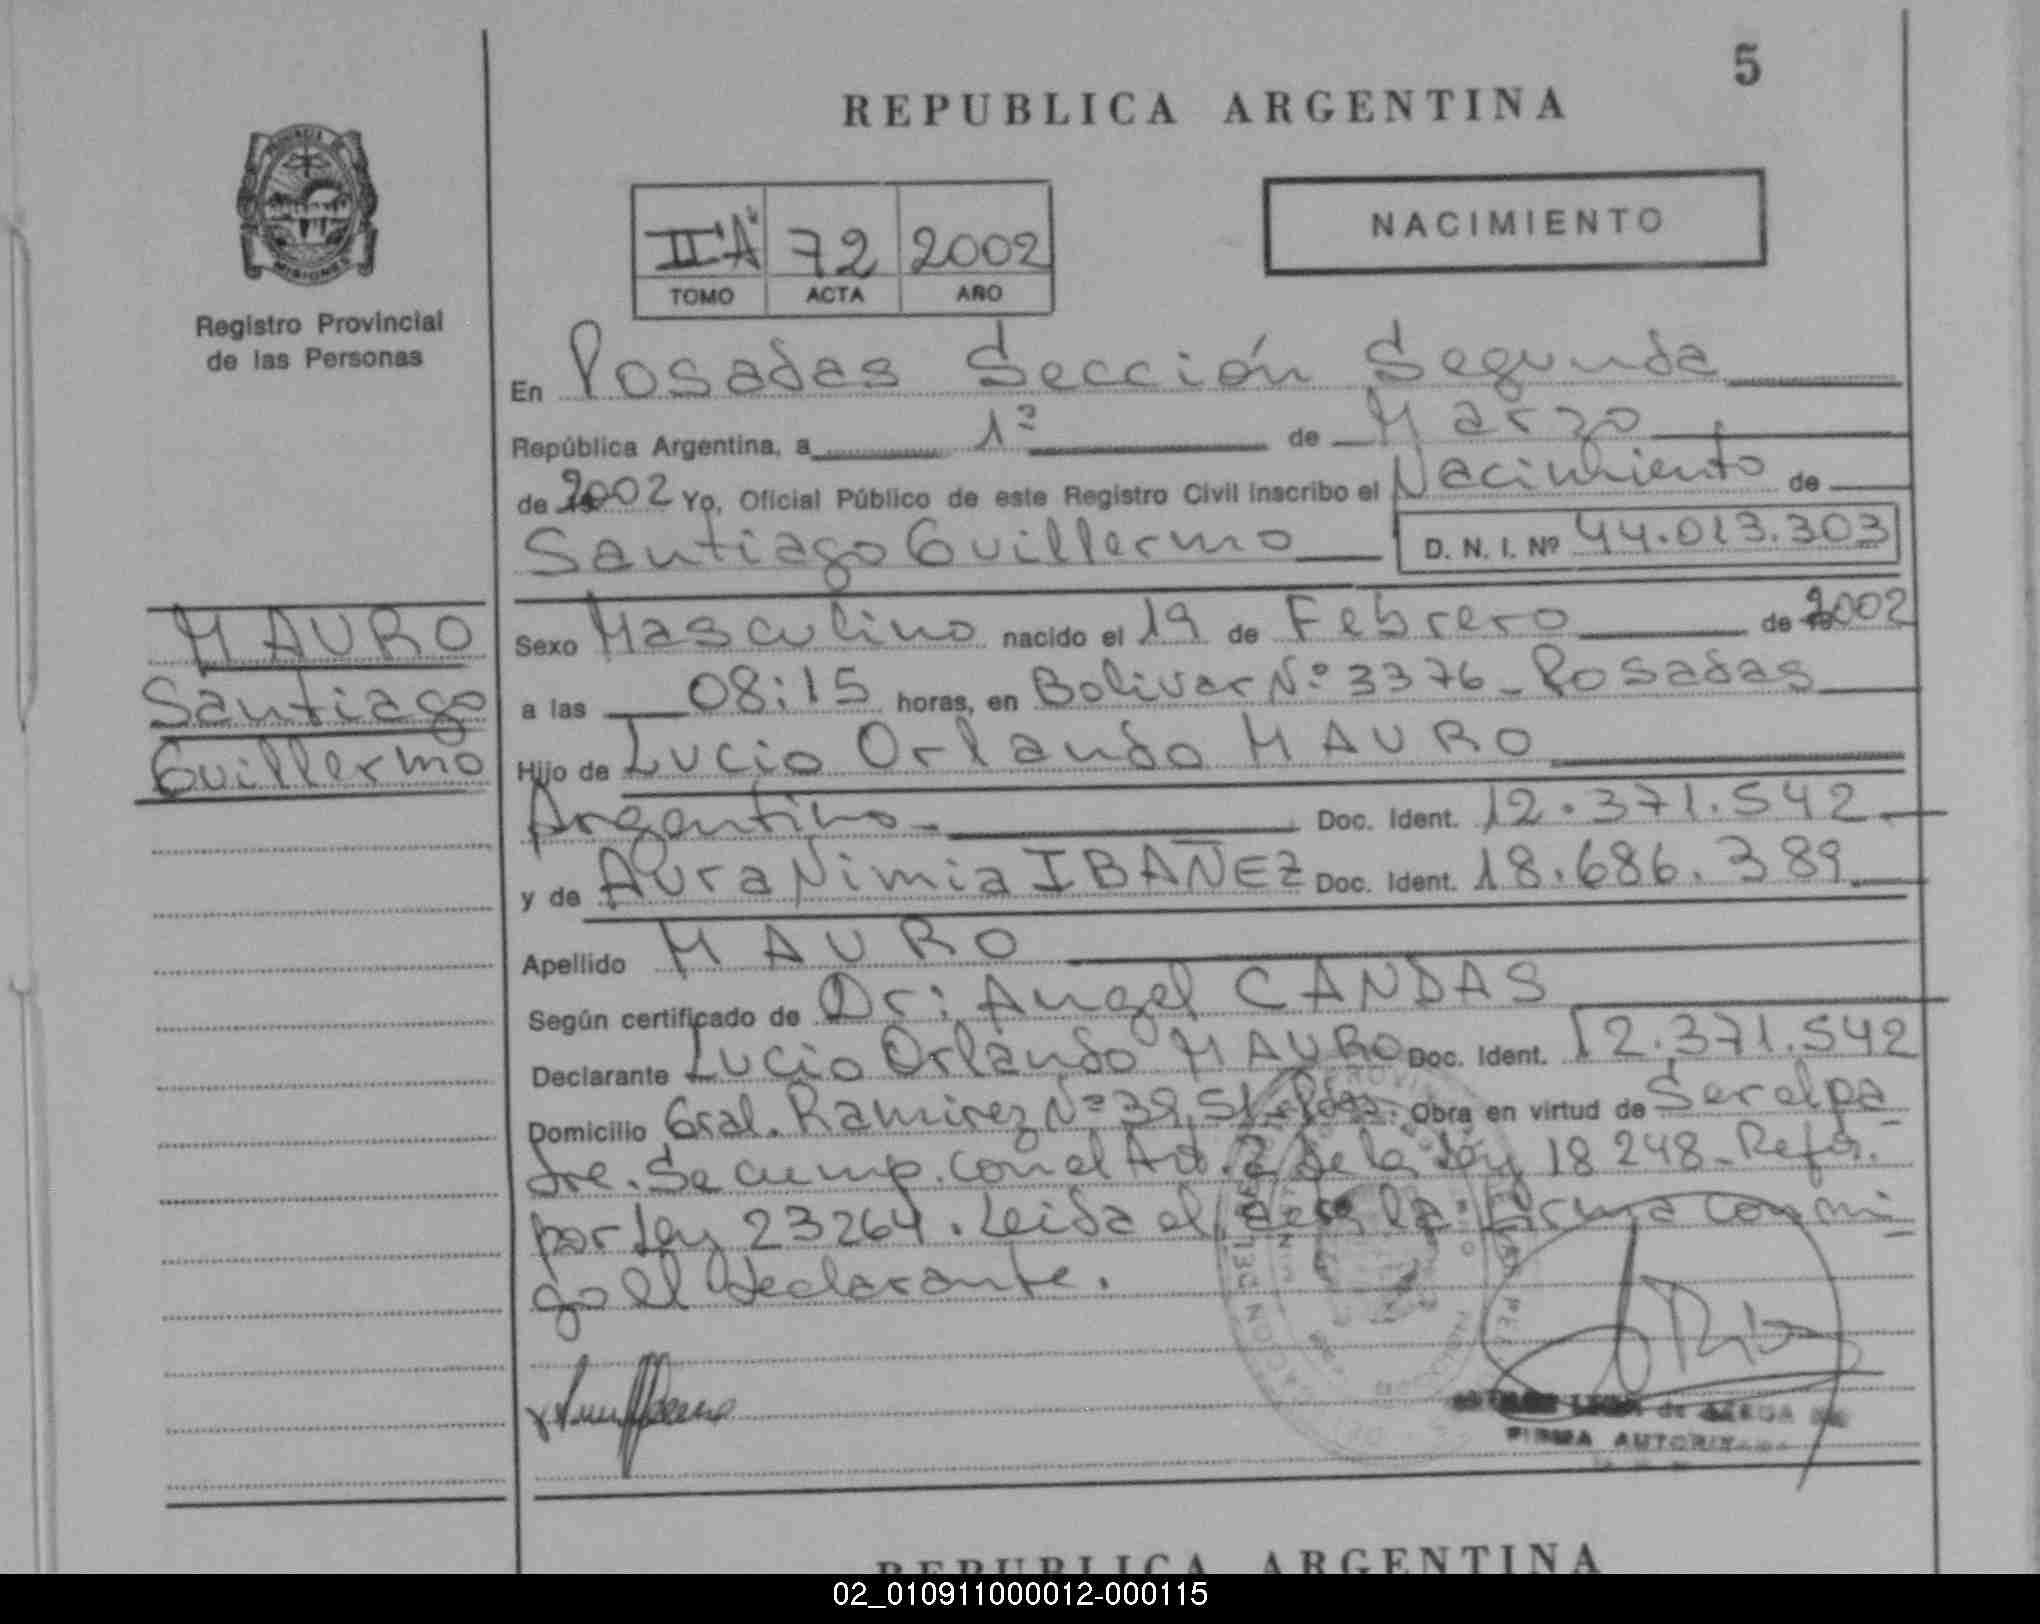 5
REPUBLICA ARGENTINA
NACIMIENTO
II "A" 72 2002
TOMO ACTA AÑO
MISIONES
Registro Provincial
de las Personas
En Posadas Sección Segunda
República Argentina, a 1º de Marzo
de 2002 Yo, Oficial Público de este Registro Civil inscribo el Nacimiento de
Santiago Guillermo D. N. I. Nº 44.013.303
MAURO
Santiago
Guillermo
Sexo Masculino nacido el 19 de Febrero de 2002
a las 08:15 horas, en Bolivar Nº 3376 - Posadas
Hijo de Lucio Orlando MAURO
Argentino. Doc. Ident. 12.371.542
y de Aura Nimia IBAÑEZ Doc. Ident. 18.686.389
Apellido MAURO
Según certificado de Dr: Angel CANDAS
Declarante Lucio Orlando MAURO Doc. Ident. 12.371.542
Domicilio Gral. Ramirez Nº 39,51 - Pdas. Obra en virtud de Ser el pa
dre. Se cump. con el Art. 2 de la Ley 18248 - Refor.
por Ley 23264. Leida el acta la firma conmi
go el declarante.
de
FIRMA AUTORIZADA
REPUBLICA ARGENTINA
02_010911000012-000115